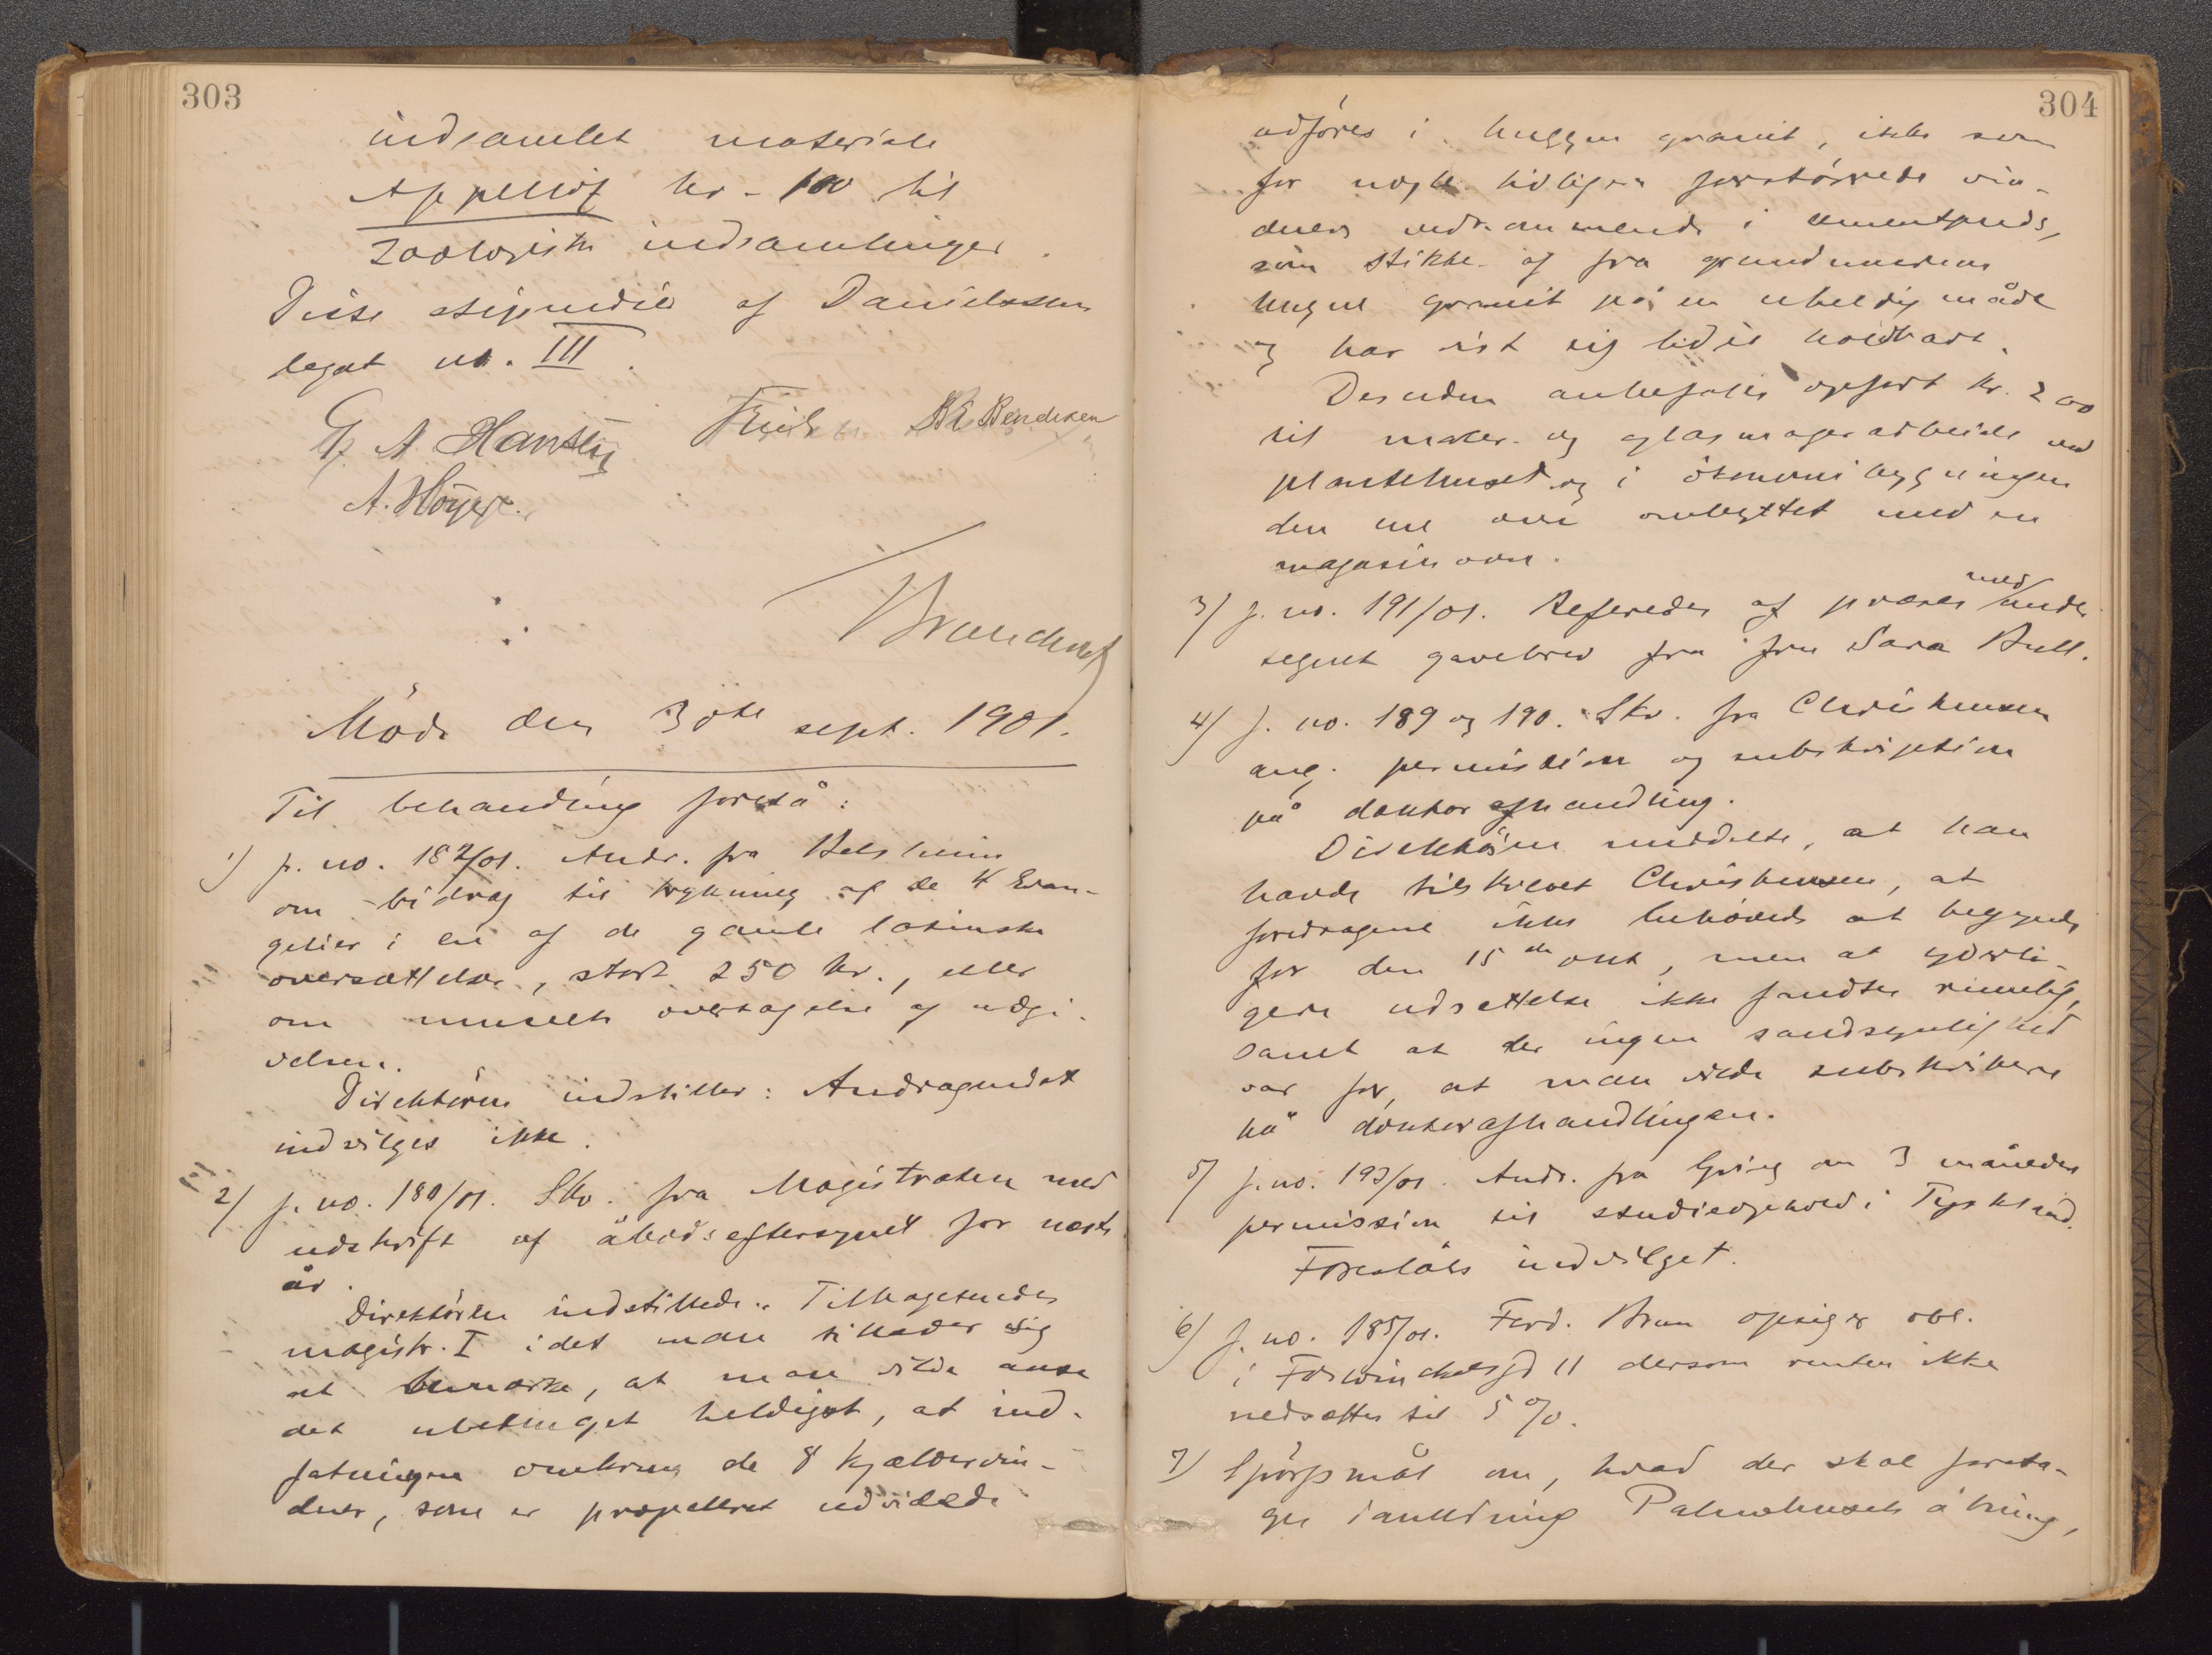 303
indsamlet materiale
Appellöf kr. 100 til
zoologiske indsamlinger.
Disse stipendier af Danielssens
legat no. III.
G A Hansen Friele BE Bendixen
A. Höyer.
Brunchorst
Möde den 30te sept. 1901.
Til behandling forelå:
1) j. no. 182/01. Andr. fra Belsheim
om bidrag til trykning af de 4 Evan-
gelier i en af de gamle latinske
oversættelser, stort 250 kr., eller
om museets overtagelse af udgi-
velsen.
Direktören indstiller: Andragendet
indvilges ikke.
2) j. no. 180/01. Skr. fra Magistraten med
udskrift af åbodseftersynet for næste
år.
Direktören indstillede: Tilbagesendes
magistr. I idet man tillader sig
at bemærke, at man vilde anse
det ubetinget heldigst, at ind-
fatningen omkring de 8 kjældervin-
duer, som er projekteret udvidede
304
udföres i huggen granit, ikke som
for nogle tidligere forstörrede vin-
duers vedkommende i cementpuds,
som stikker af fra grundmurens
hugne granit på en uheldig måde
og har vist sig lidet holdbart.
Desuden anbefales opfört kr. 200
til maler- og glasmagerarbeide ved
plantehuset og i ökonomibygningen
den ene ovn ombyttet med en
magasinovn.
3) j. no. 191/01. Refereredes af præses med under-
tegnet gavebrev fra fru Sara Bull.
4) j. no. 189 og 190. Skr. fra Christensen
ang. permission og subskription
på doktorafhandling.
Direktören meddelte, at han
havde tilskrevet Christensen, at
foredragene ikke behövede at begynde
för den 15de okt, men at yderli-
gere udsettelse ikke fandtes rimelig,
samt at der ingen sandsynlighed
var for, at man vilde subskribere
på doktorafhandlingen.
5) j. no. 193/01. Andr. fra Grieg om 3 måneders
permission til studieophold i Tyskland.
Foreslåes indvilget.
6) j. no. 185/01. Ferd. Brun opsiger obl.
i dersom renten ikke
nedsættes til 5 %.
7) Spörgsmål om, hvad der skal foreta-
ges i anledning Palmehusets åbning,